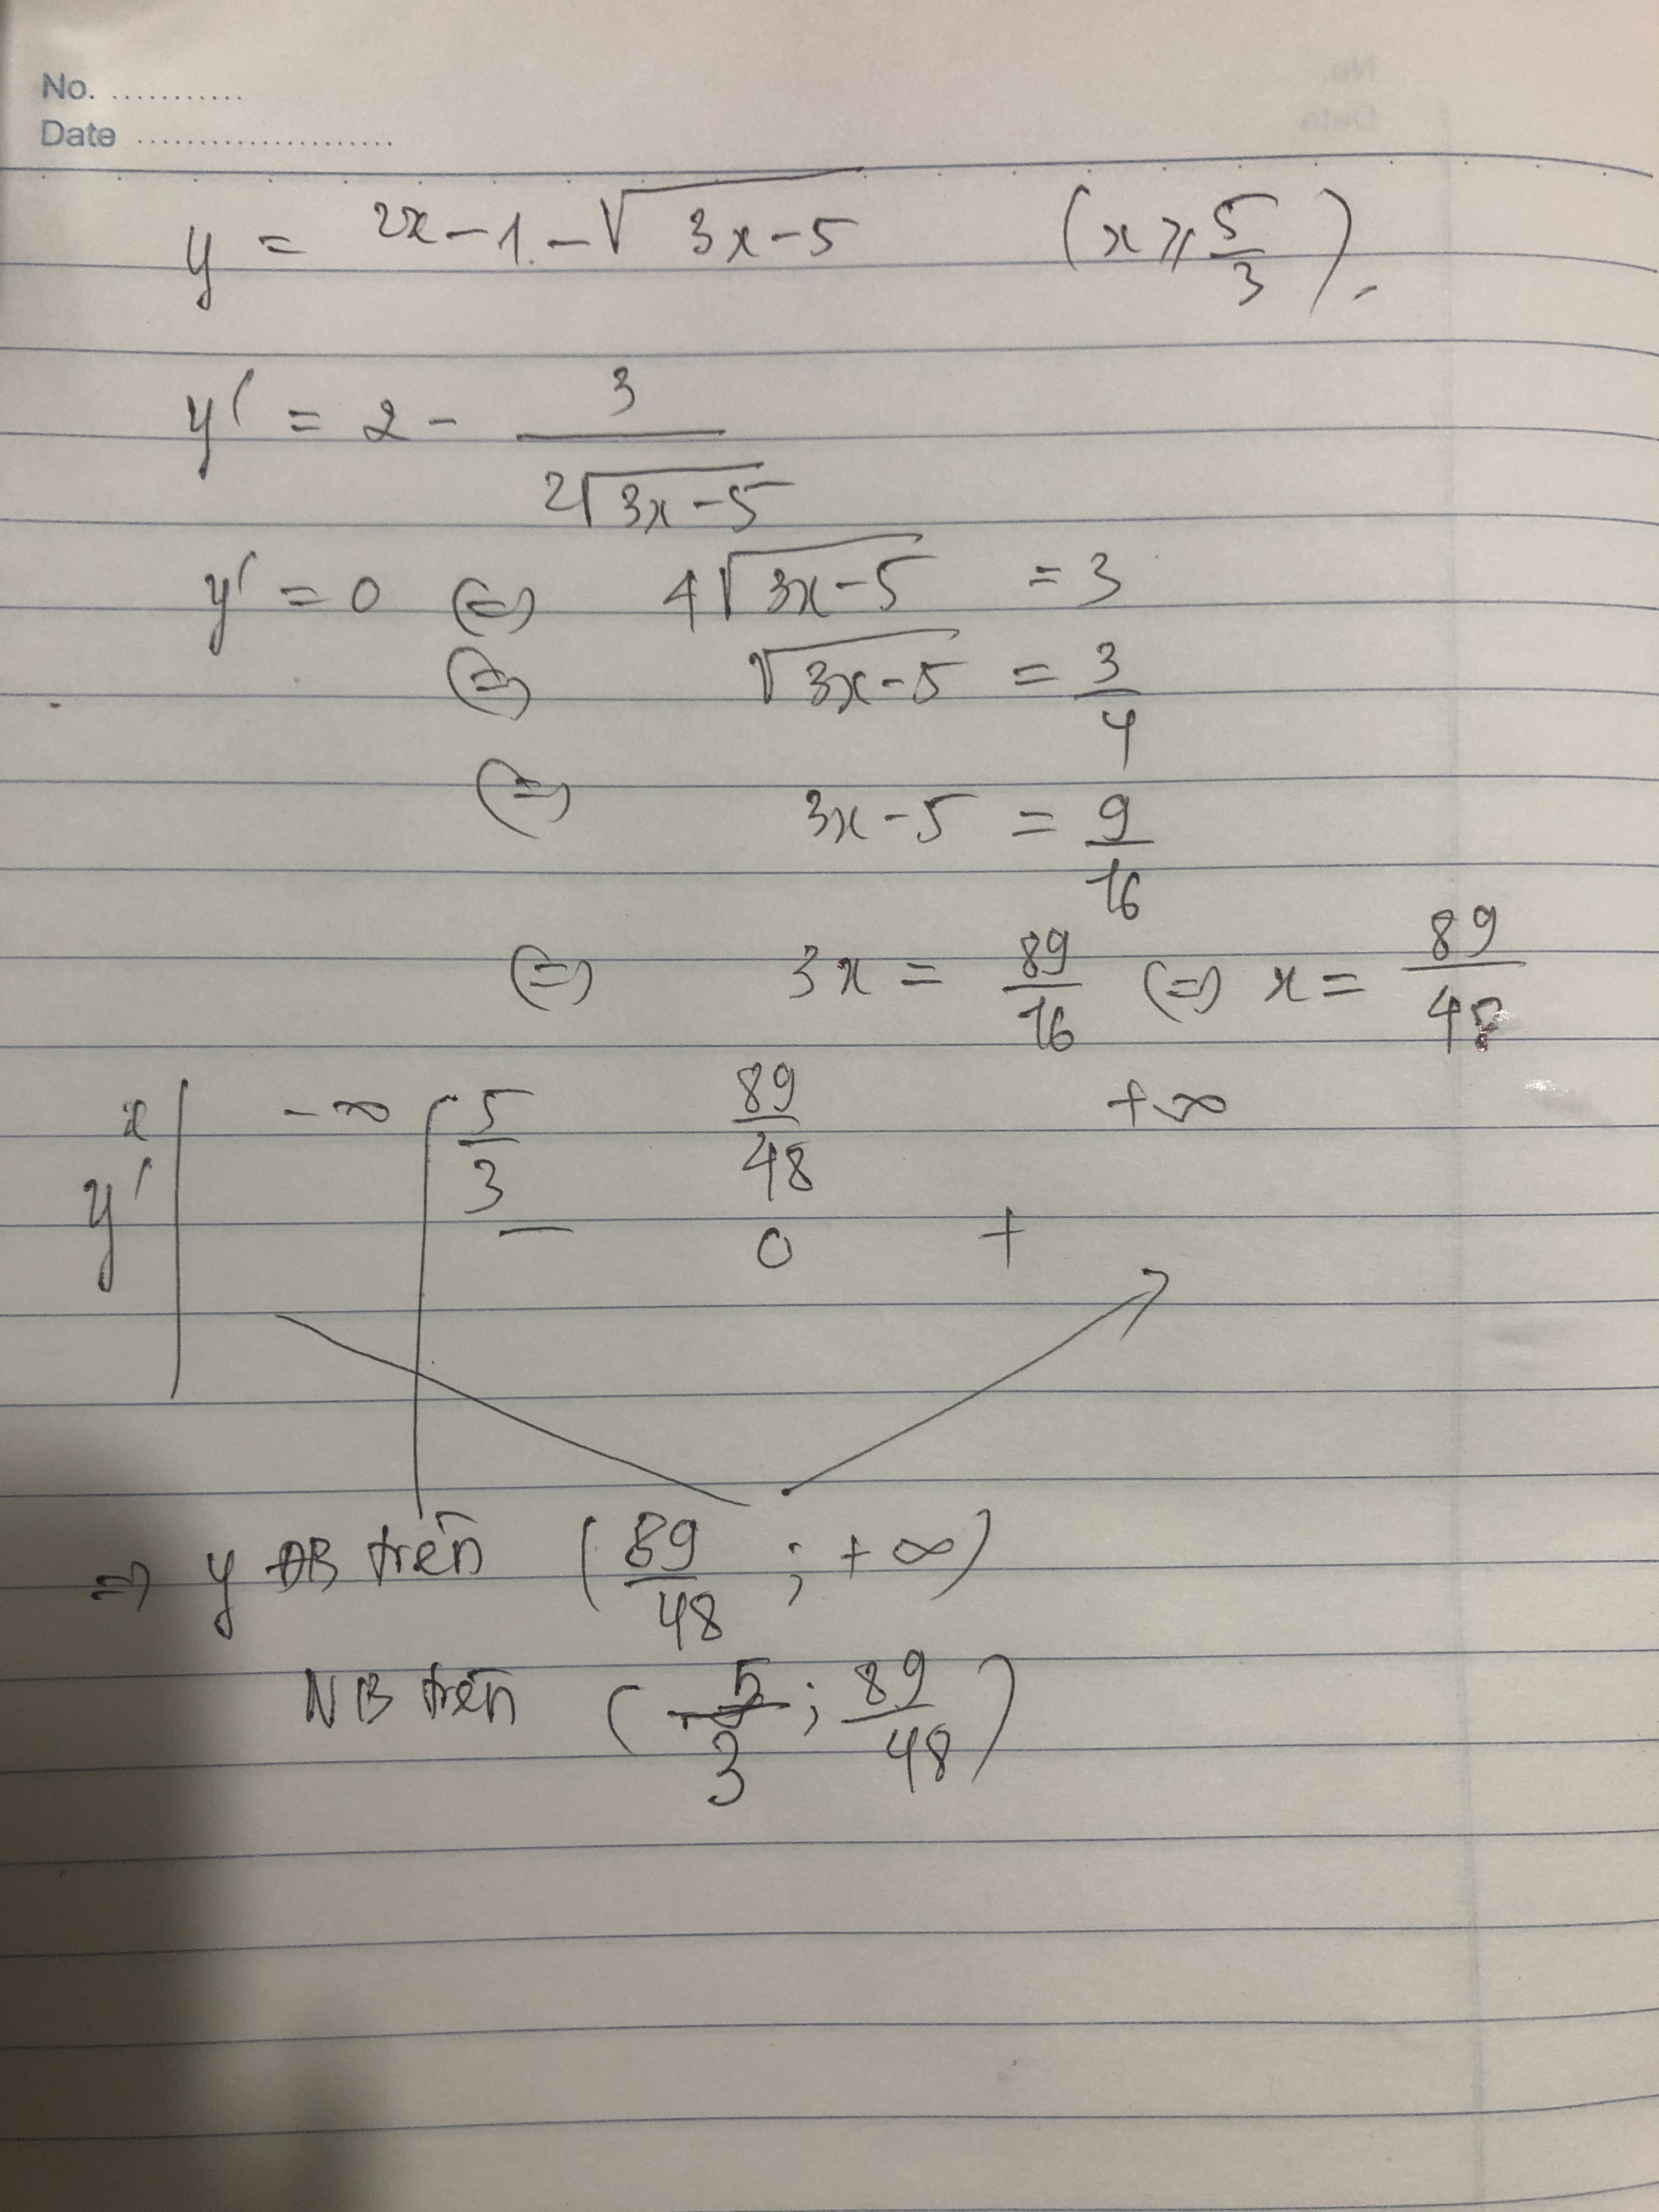 No. ...........
Date ......................
y = 2x - 1 - √(3x-5) (x ⩾ 5/3).
y' = 2 - 3/(2√(3x-5))
y' = 0 (=) 4√(3x-5) = 3
(=) √(3x-5) = 3/4
(=) 3x - 5 = 9/16
(=) 3x = 89/16 (=) x = 89/48
x -∞ 5/3 89/48 +∞
y' - 0 +
=> y ĐB trên (89/48 ; +∞)
NB trên (5/3 ; 89/48)